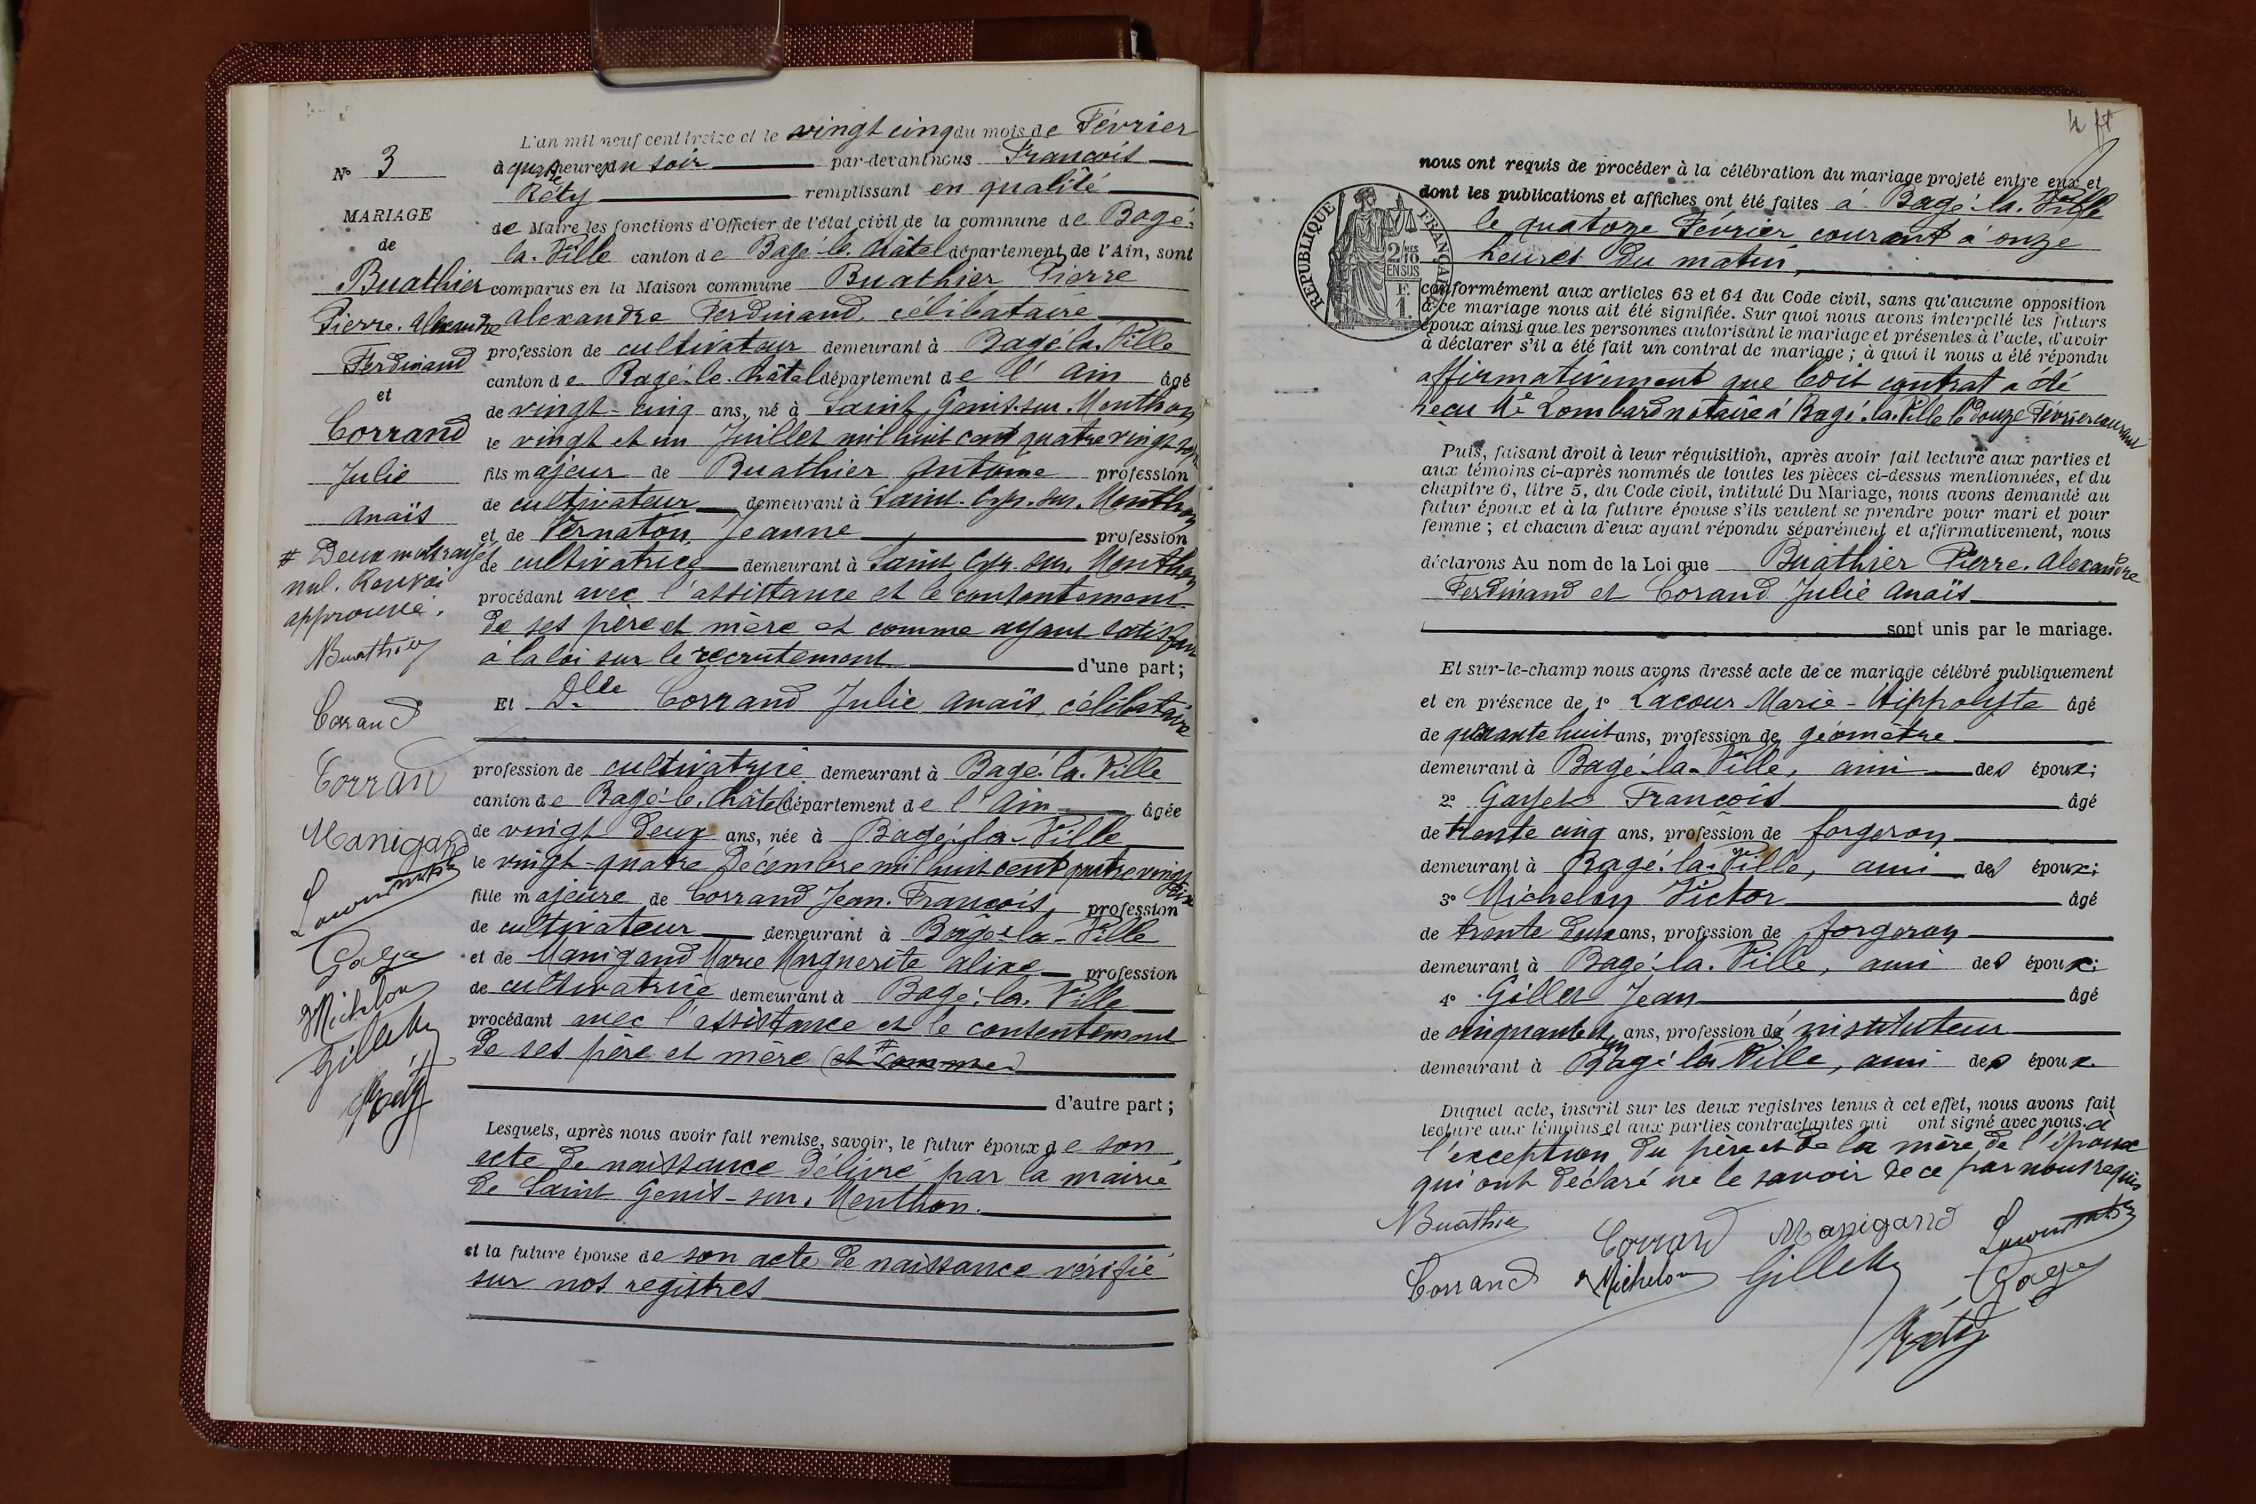 N° 3
MARIAGE
de
Buathier
Pierre. Alexandre
Ferdinand
et
Corrand
Julie
Anaïs
# Deux mots rayés
nul. Renvoi
approuvé.
Buathier
Corrand
Corrand
Manigand
Michelon
Gillet
Réty
L'an mil neuf cent treize et le vingt cinq du mois de Février
à quatre heures du soir par-devant nous François
Réty remplissant en qualité
de Maire les fonctions d'Officier de l'état civil de la commune de Bagé-
la-Ville canton de Bagé-le-Châtel département de l'Ain, sont
comparus en la Maison commune Buathier Pierre
Alexandre Ferdinand, célibataire
profession de cultivateur demeurant à Bagé-la-Ville
canton de Bagé-le-Châtel département de l'Ain âgé
de vingt-cinq ans, né à Saint Genis-sur-Menthon
le vingt et un Juillet mil huit cent quatre vingt sept
fils majeur de Buathier Antoine profession
de cultivateur demeurant à Saint-Cyr-sur-Menthon
et de Vernaton Jeanne profession
de cultivatrice demeurant à Saint Cyr-sur-Menthon
procédant avec l'assistance et le consentement
de ses père et mère et comme ayant satisfait
à la loi sur le recrutement d'une part;
Et Dlle Corrand Julie Anaïs, célibataire
profession de cultivatrice demeurant à Bagé-la-Ville
canton de Bagé-le-Châtel département de l'Ain âgée
de vingt deux ans, née à Bagé-la-Ville
le vingt-quatre Décembre mil huit cent quatre vingt dix
fille majeure de Corrand Jean-François, profession
de cultivateur demeurant à Bâgé-la-Ville
et de Manigand Marie Marguerite Alixe profession
de cultivatrice demeurant à Bagé-la-Ville
procédant avec l'assistance et le consentement
de ses père et mère (et comme) #
d'autre part;
Lesquels, après nous avoir fait remise, savoir, le futur époux de son
acte de naissance délivré par la mairie
de Saint Genis-sur-Menthon.
et la future épouse de son acte de naissance vérifié
sur nos registres
4
RÉPUBLIQUE FRANÇAISE
2/10 MES
EN SUS
F.
1.
nous ont requis de procéder à la célébration du mariage projeté entre eux et
dont les publications et affiches ont été faites à Bagé-la-Ville
le quatorze Février courant à onze
heures du matin,
conformément aux articles 63 et 64 du Code civil, sans qu'aucune opposition
à ce mariage nous ait été signifiée. Sur quoi nous avons interpellé les futurs
époux ainsi que les personnes autorisant le mariage et présentes à l'acte, d'avoir
à déclarer s'il a été fait un contrat de mariage; à quoi il nous a été répondu
affirmativement que ledit contrat a été
reçu Me Lombard notaire à Bagé-la-Ville le douze Février courant
Puis, faisant droit à leur réquisition, après avoir fait lecture aux parties et
aux témoins ci-après nommés de toutes les pièces ci-dessus mentionnées, et du
chapitre 6, titre 5, du Code civil, intitulé Du Mariage, nous avons demandé au
futur époux et à la future épouse s'ils veulent se prendre pour mari et pour
femme; et chacun d'eux ayant répondu séparément et affirmativement, nous
déclarons Au nom de la Loi que Buathier Pierre. Alexandre
Ferdinand et Corand Julie Anaïs
sont unis par le mariage.
Et sur-le-champ nous avons dressé acte de ce mariage célébré publiquement
et en présence de 1° Lacour Marie-Hippolyte âgé
de quarante huit ans, profession de géomètre
demeurant à Bagé-la-Ville, ami des époux;
2° François âgé
de trente cinq ans, profession de forgeron
demeurant à Bagé-la-Ville, ami des époux;
3° Michelon Victor âgé
de trente deux ans, profession de forgeron
demeurant à Bagé-la-Ville, ami des époux;
4° Gillet Jean âgé
de cinquante un ans, profession d'instituteur
demeurant à Bagé la Ville, ami des époux
Duquel acte, inscrit sur les deux registres tenus à cet effet, nous avons fait
lecture aux témoins et aux parties contractantes qui ont signé avec nous. à
l'exception du père et de la mère de l'époux
qui ont déclaré ne le savoir de ce par nous requis
Buathier Corrand Manigand
Corrand Michelon Gillet
Réty